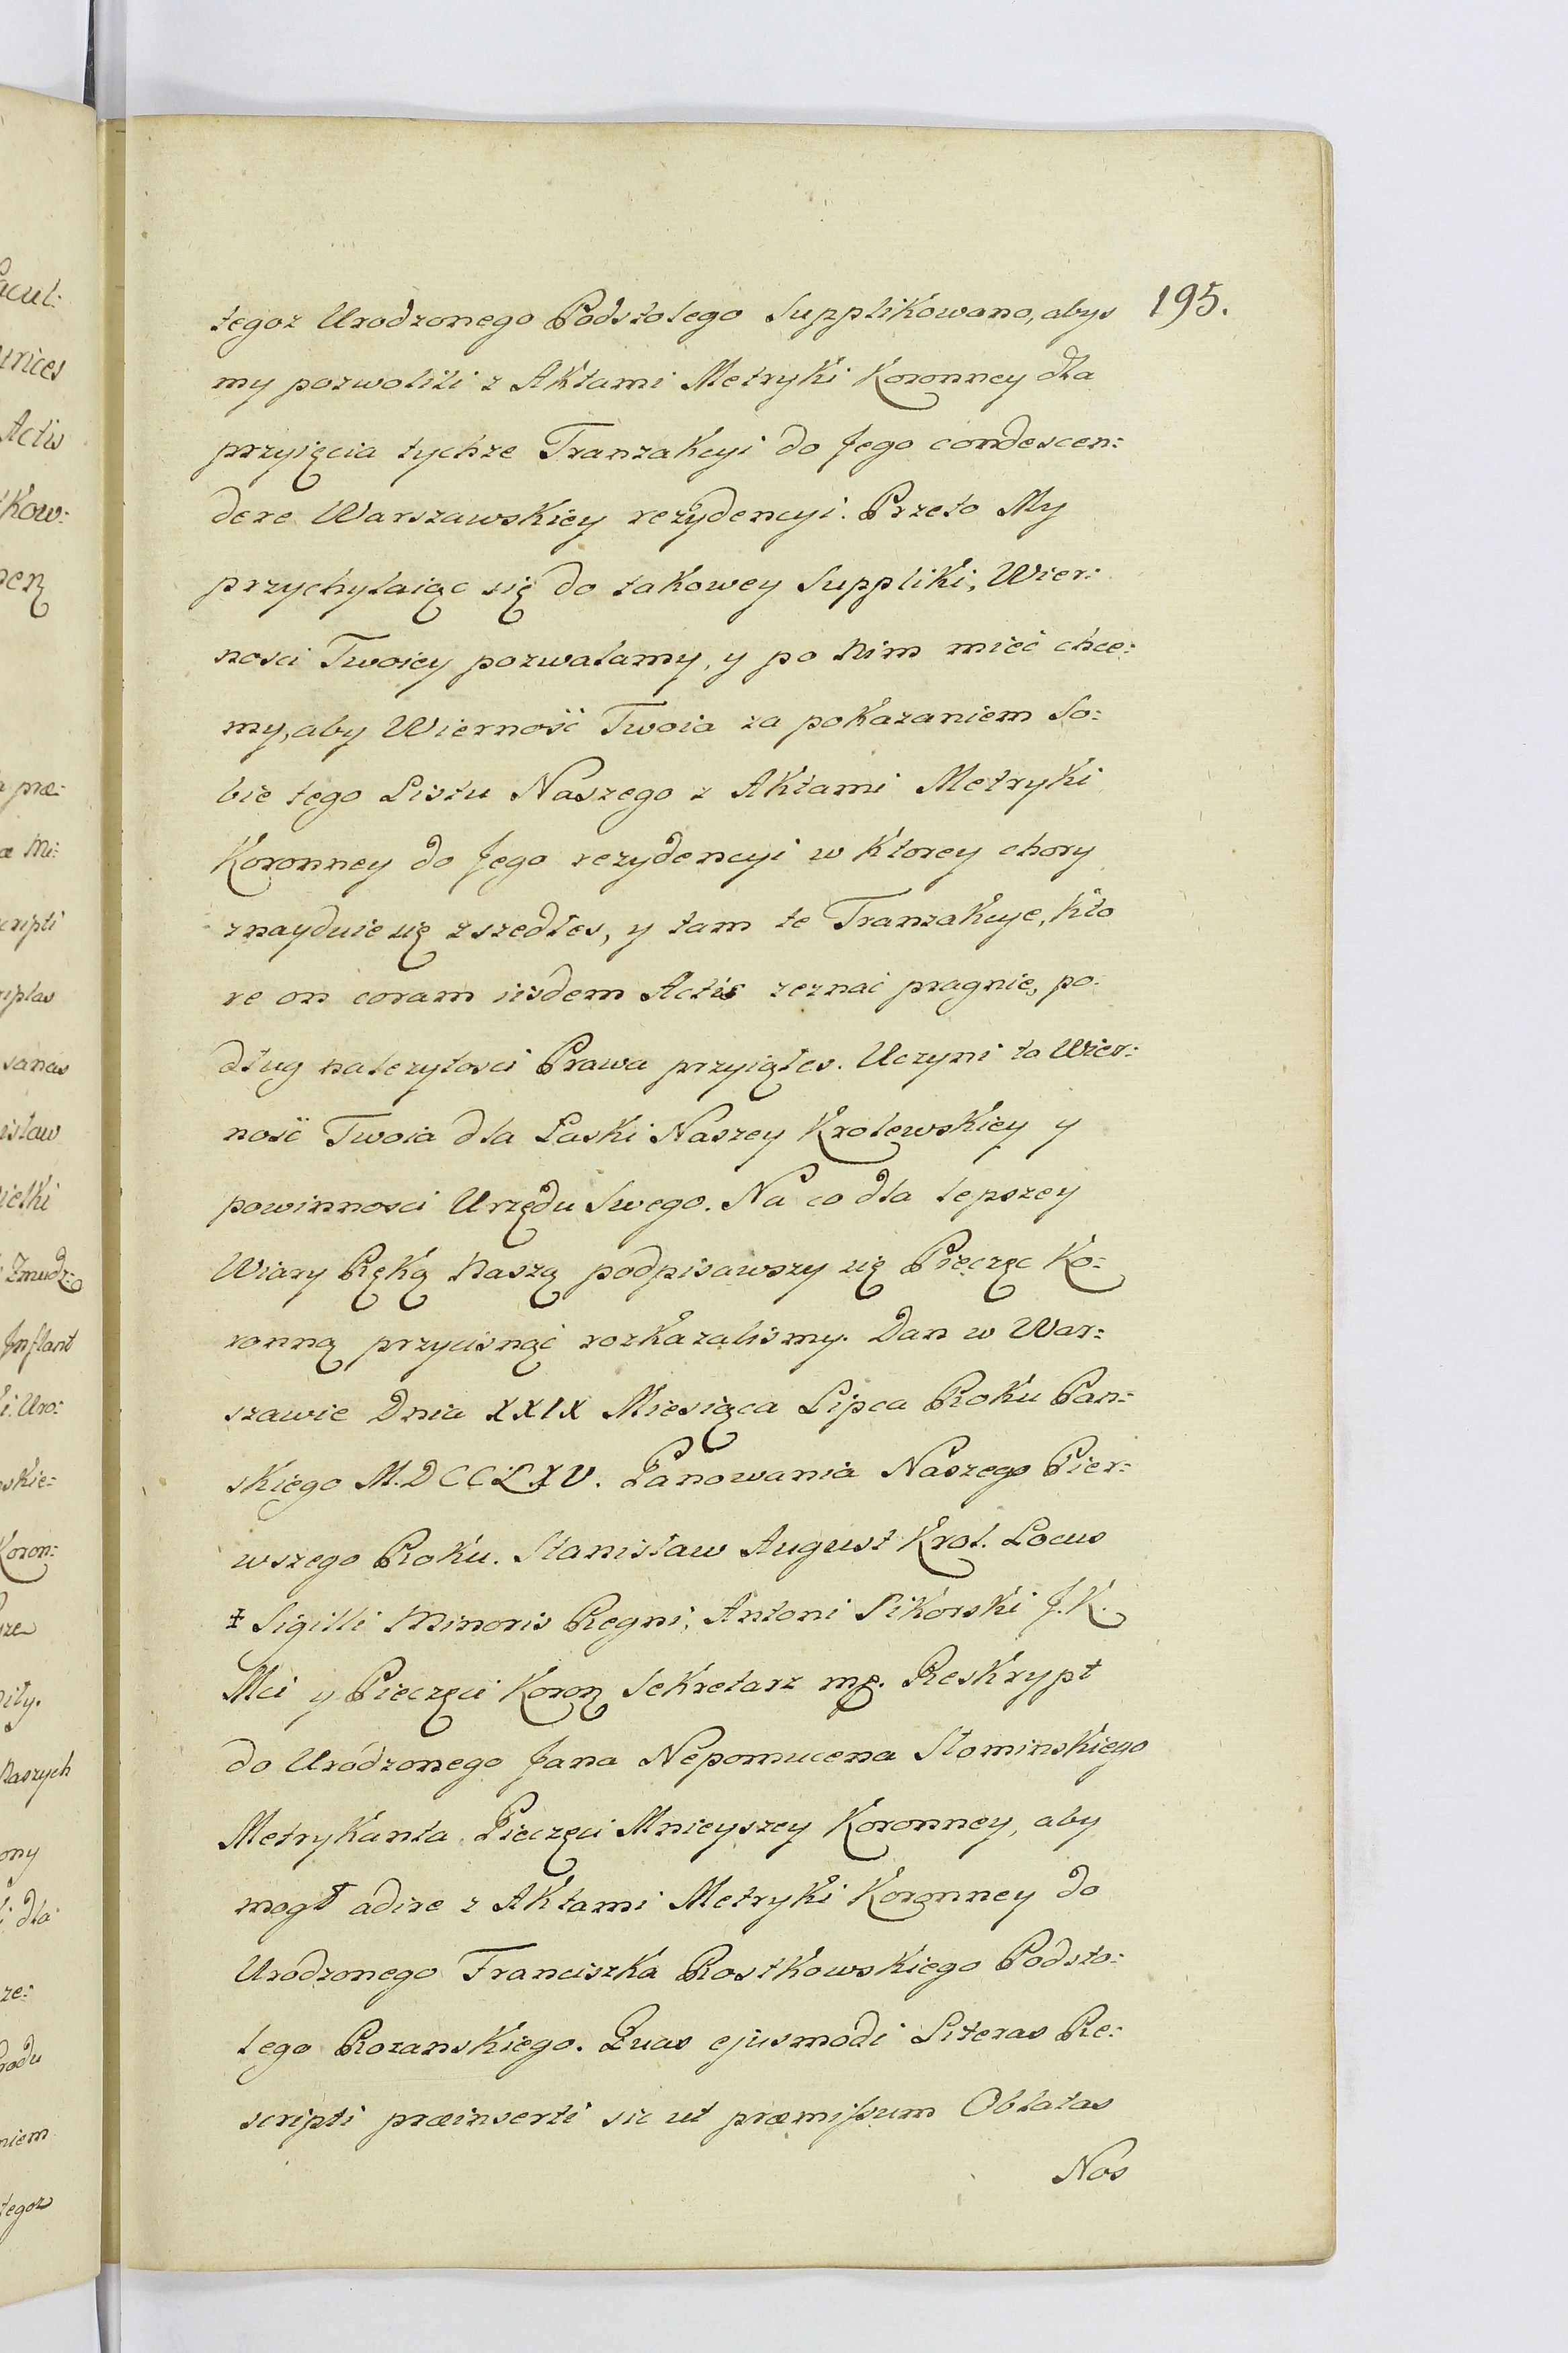 195.
tegoz Urodzonego Podstolego Supplikowano, abys
my pozwolili z Aktami Metryki Koronney dla
przyięcia tychze Tranzakcyi do Jego condescen:
dere Warszawskiey rezydencyi. Przeto My
przychylaiąc się do takowey Suppliki, Wier:
nosci Twoiey pozwalamy, y po Nim mieć chce:
my, aby Wierność Twoia za pokazaniem So:
bie tego Listu Naszego z Aktami Metryki
Koronney do Jego rezydencyi w ktorey chory
znayduie się zszedłes, y tam te Tranzakcye, kto
re on coram iisdem Actis zeznać pragnie, po:
dług nalezytosci Prawa przyiąłes. Uczyni to Wier:
ność Twoia dla Łaski Naszey Krolewskiey y
powinnosci Urzędu Swego. Na co dla lepszey
Wiary Ręką Naszą podpisawszy się Pieczęć Ko:
ronną przycisnąć rozkazalismy. Dan w War:
szawie Dnia XXIX Miesiąca Lipca Roku Pan:
skiego M.DCCLXV. Panowania Naszego Pier:
wszego Roku. Stanisław August Krol. Locus
‡ Sigilli Minoris Regni, Antoni Sikorski J. K.
Mci y Pieczęci Koron Sekretarz mp. Reskrypt
do Urodzonego Jana Nepomucena Słominskiego
Metrykanta Pieczęci Mnieyszey Koronney, aby
mogł adire z Aktami Metryki Koronney do
Urodzonego Franciszka Rostkowskiego Podsto:
lego Rozanskiego. Quas ejusmodi Literas Re:
scripti præinserti sic ut præmissum Oblatas
Nos